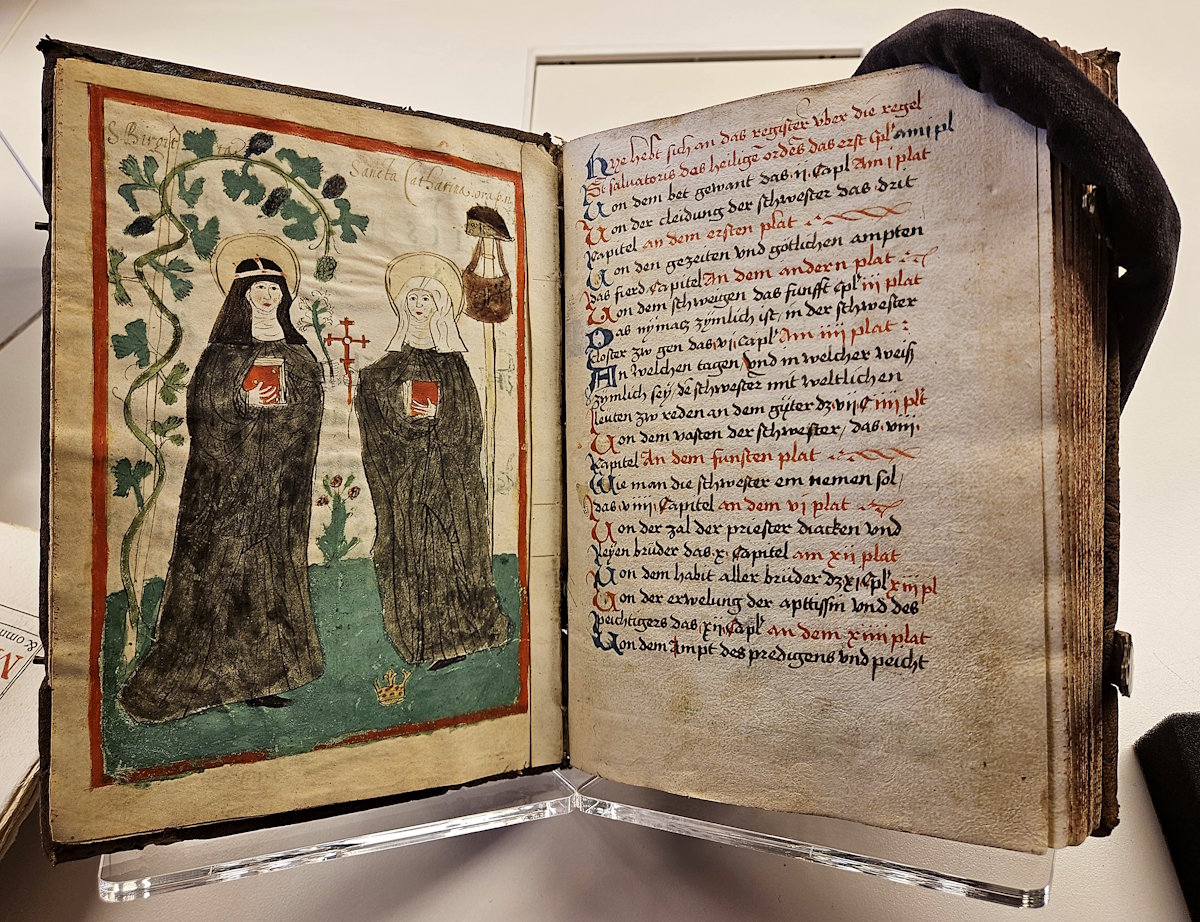 S. Birgit
Sancta Catharina. ora p. n.
Hye hebt sich an das register vber die regel
Sti salvatoris des heiligē ordēs das erst Cpl' am i pl
Von dem bet gewant das ij Capl Am i plat
Von der cleidung der schwester das drit
Kapitel an dem ersten plat
Von den gezeiten vnd götlichen ampten
Das fierd Capitel An dem andern plat
Von dem schweygen das funfft Cpl' iii plat
Das nymatz zymlich ist, in der schwester
closter zw gen das vi Capl' Am iiii plat :
An welchen tagen, vnd in welcher weiß
zymlich sey, dē schwester mit weltlichen
leuten zw reden an dem gijter dz vij C iiii plt
Von dem vasten der schwester, das viij.
Kapitel An dem funften plat
Wie man die schwester ein nemen sol,
das viiij Capitel an dem vi plat
Von der zal der priester diacken vnd
leyen brüder das x Capitel am xii plat
Von dem habit aller brüder dz xi Cpl' xiii pl
Von der erwelung der apttissin vnd des
peichtigers das xij Capl' an dem xiiii plat
Von dem Ampt des predigens vnd peicht
& omn